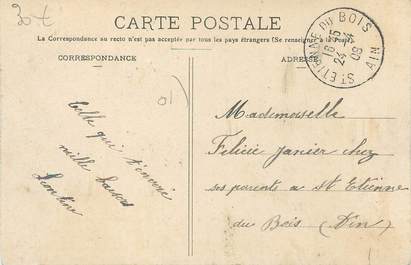 30 €
CARTE POSTALE
La Correspondance au recto n'est pas acceptée par tous les pays étrangers (Se renseigner à la Poste)
CORRESPONDANCE
ADRESSE
ST ETIENNE DU BOIS
18-15
24-4
08
AIN
01
Celle qui t'envoie
mille baisers
Leontine
Mademoiselle
Felicie Janier chez
ses parents a St Etienne
du Bois (Ain)